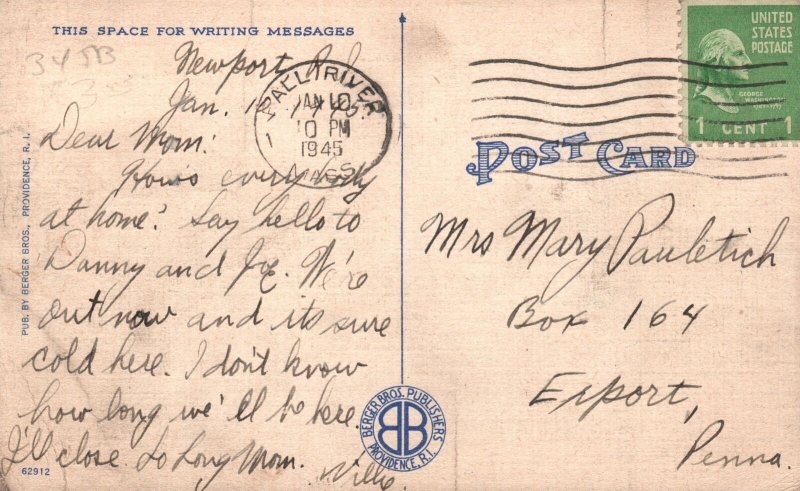 THIS SPACE FOR WRITING MESSAGES
34 5B
Newport, R.I.
Jan. 10, 1945.
Dear Mom:
How's everybody
at home? Say hello to
Danny and Joe. We're
out now and its sure
cold here. I don't know
how long we'll be here.
I'll close. So Long Mom.
Willie.
62912
PUB. BY BERGER BROS., PROVIDENCE, R. I.
FALL RIVER
JAN 10
10 PM
1945
MASS.
UNITED
STATES
POSTAGE
GEORGE
WASHINGTON
1 CENT 1
POST CARD
Mrs Mary Pauletich
Box 164
Export,
Penna.
BERGER BROS. PUBLISHERS
BB
PROVIDENCE, R.I.